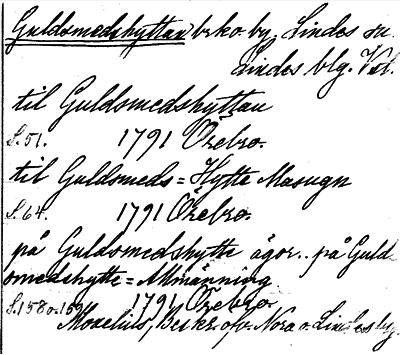 Guldsmedshyttan brko by, Lindes sn.
Lindes blg. Vstl.
till Guldsmedshyttan
S. 51. 1791 Örebro.
till Guldsmeds=Hytte Masugn
S. 64. 1791 Örebro.
på Guldsmedshytte ägor.. på Guld-
smedshytte=Allmänning
S. 158 o. 159 1791 Örebro.
Moxelius, Beskr. öfv. Nora o. Lindes bg.